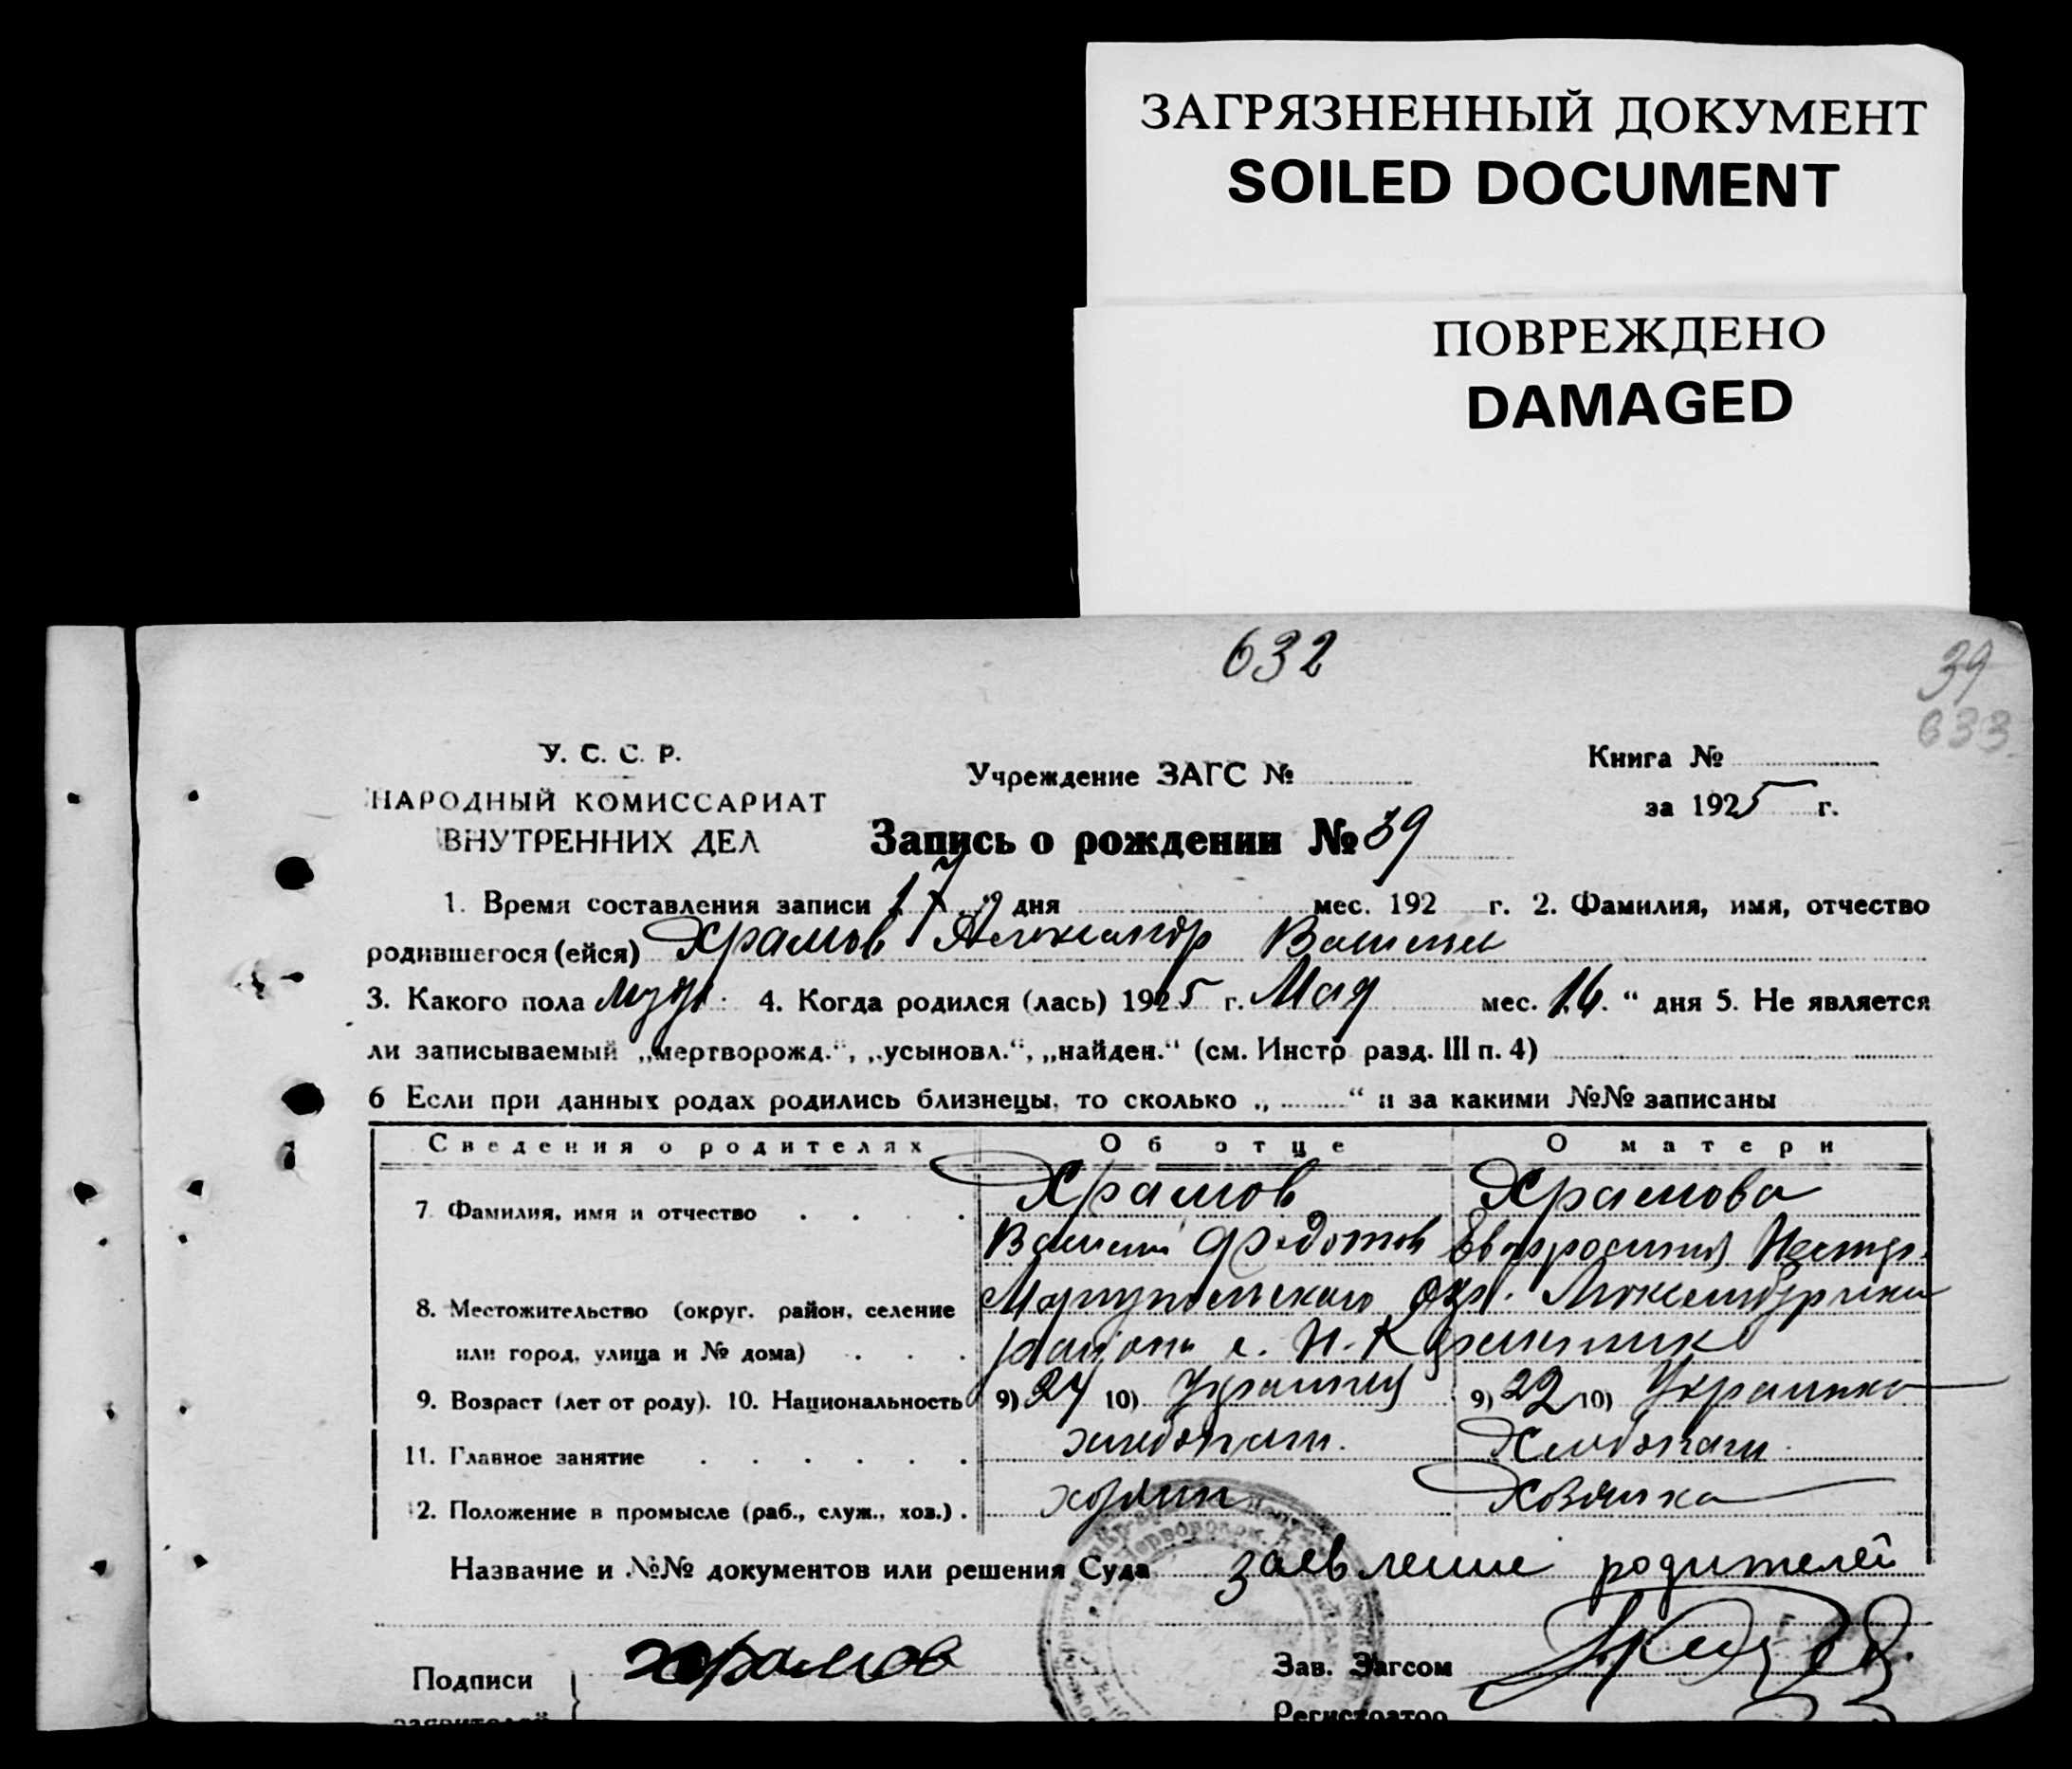 ЗАГРЯЗНЕННЫЙ ДОКУМЕНТ
SOILED DOCUMENT
ПОВРЕЖДЕНО
DAMAGED
632
39
633
У. С. С. Р.
НАРОДНЫЙ КОМИССАРИАТ
ВНУТРЕННИХ ДЕЛ
Учреждение ЗАГС №
Книга №
за 1925 г.
Запись о рождении № 39
1. Время составления записи дня мес. 192 г. 2. Фамилия, имя, отчество
родившегося (ейся) Храмов Александр Васильев
3. Какого пола муж. 4. Когда родился (лась) 1925 г. Мая мес. 16 " дня 5. Не является
ли записываемый „мертворожд.“, „усыновл.“, „найден.“ (см. Инстр разд. III п. 4)
6 Если при данных родах родились близнецы, то сколько „ “ и за какими №№ записаны
Сведения о родителях Об отце О матери
7. Фамилия, имя и отчество Храмов Храмова
Василий Федотов Евфросиния Нестер.
8. Местожительство (округ, район, селение Мариупольского окр. Люксембургского
или город, улица и № дома) района с. Н.-
9. Возраст (лет от роду). 10. Национальность 9) 24 10) Украинец 9) 22 10) Украинка
11. Главное занятие хлебопаш. Хлебопаш.
12. Положение в промысле (раб., служ., хоз.) хозяин Хозяйка
Название и №№ документов или решения Суда заевление родителей
Подписи Храмов Зав. Загсом
заявителей Регистратор